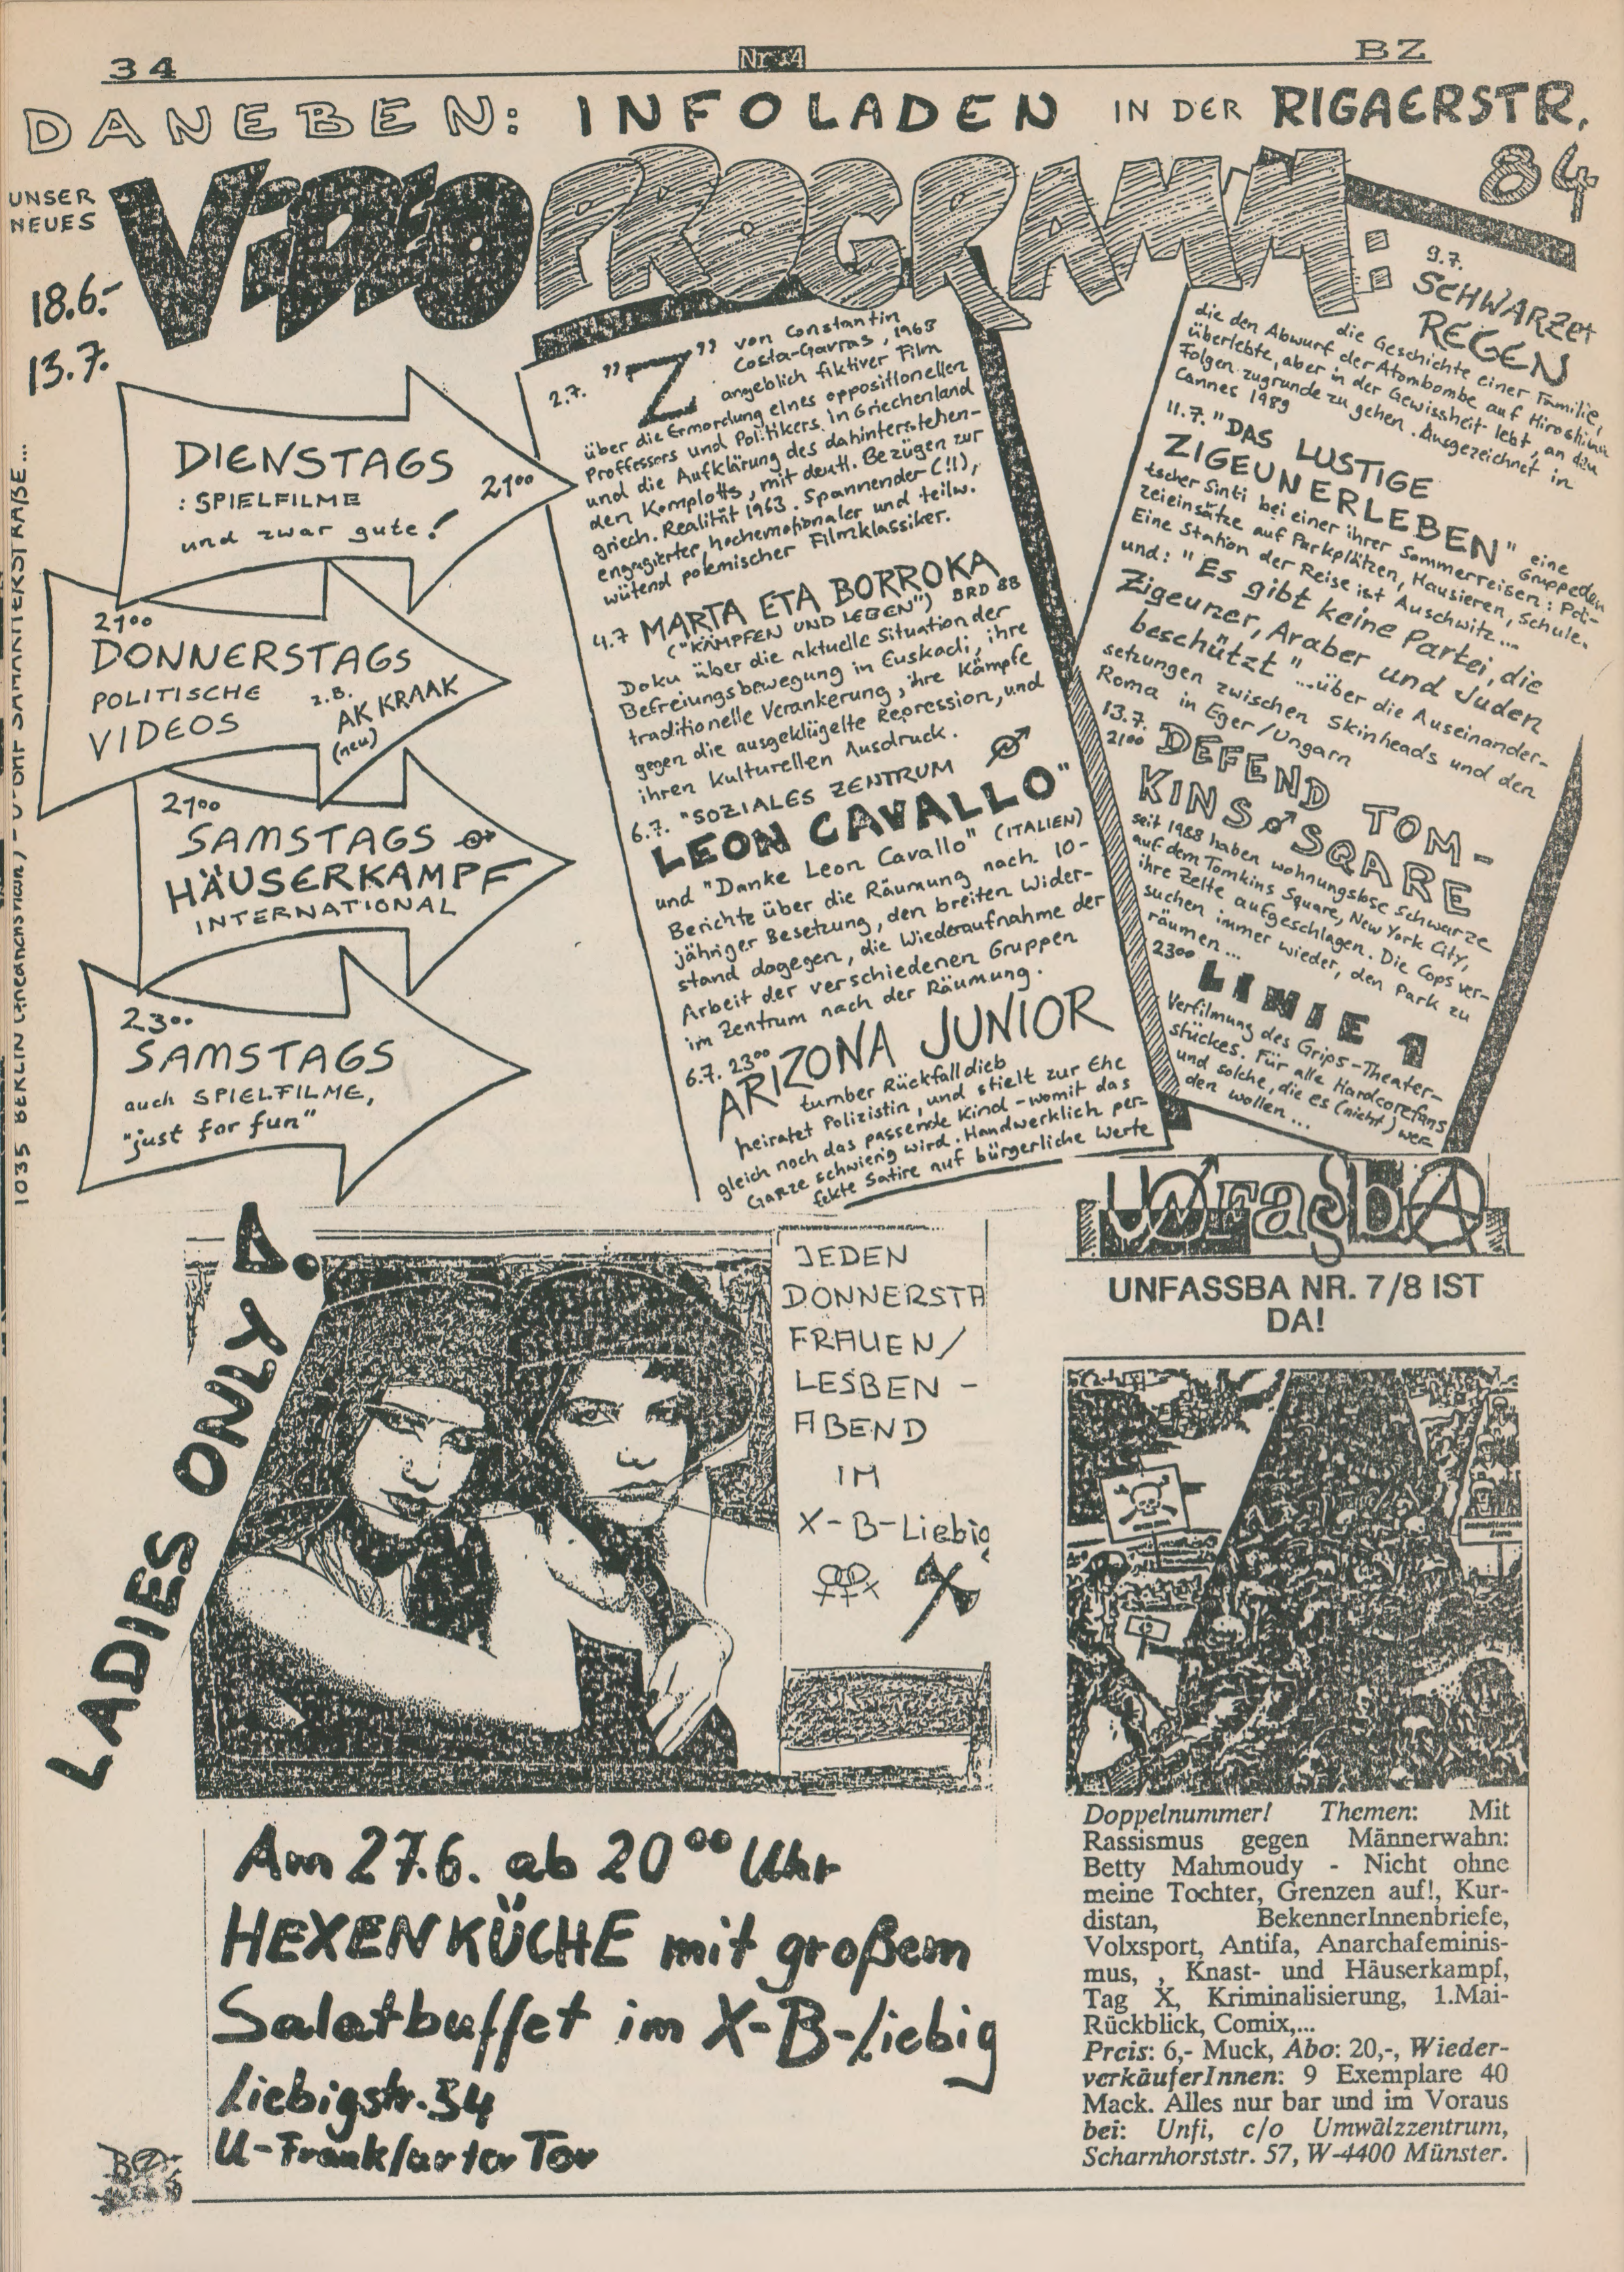 34
Nr 14
BZ
DANEBEN: INFOLADEN IN DER RIGAERSTR.
84
UNSER
NEUES
VIDEO PROGRAMM:
18.6.-
13.7.
DIENSTAGS
: SPIELFILME
und zwar gute!
21⁰⁰
21⁰⁰
DONNERSTAGS
POLITISCHE
VIDEOS
z.B.
AK KRAAK
(neu)
21⁰⁰
SAMSTAGS
HÄUSERKAMPF
INTERNATIONAL
23⁰⁰
SAMSTAGS
auch SPIELFILME,
"just for fun"
1035 BERLIN SAMARITERSTRAßE...
2.7. "Z" von Constantin
Costa-Gavras, 1968
angeblich fiktiver Film
über die Ermordung eines oppositionellen
Proffessors und Politikers in Griechenland
und die Aufklärung des dahinterstehen-
den Komplotts, mit deutl. Bezügen zur
griech. Realität 1963. Spannender (!!),
engagierter, hochemotionaler und teilw.
wütend polemischer Filmklassiker.
4.7 MARTA ETA BORROKA
("KÄMPFEN UND LEBEN") BRD 88
Doku über die aktuelle Situation der
Befreiungsbewegung in Euskadi, ihre
traditionelle Verankerung, ihre Kämpfe
gegen die ausgeklügelte Repression, und
ihren kulturellen Ausdruck.
6.7. "SOZIALES ZENTRUM
LEON CAVALLO"
und "Danke Leon Cavallo" (ITALIEN)
Berichte über die Räumung nach 10-
jähriger Besetzung, den breiten Wider-
stand dagegen, die Wiederaufnahme der
Arbeit der verschiedenen Gruppen
im Zentrum nach der Räumung.
6.7. 23⁰⁰
ARIZONA JUNIOR
tumber Rückfalldieb
heiratet Polizistin, und stielt zur Ehe
gleich noch das passende Kind - womit das
Ganze schwierig wird. Handwerklich per-
fekte Satire auf bürgerliche Werte
9.7.
SCHWARZER
REGEN
die Geschichte einer Familie,
die den Abwurf der Atombombe auf Hiroshima
überlebte, aber in der Gewissheit lebt, an den
Folgen zugrunde zu gehen. Ausgezeichnet in
Cannes 1989
11.7. "DAS LUSTIGE
ZIGEUNERLEBEN" eine
Gruppe deu
tscher Sinti bei einer ihrer Sommerreisen: Poli-
zeieinsätze auf Parkplätzen, Hausieren, Schule.
Eine Station der Reise ist Auschwitz....
und: "Es gibt keine Partei, die
Zigeuner, Araber und Juden
beschützt"...über die Auseinander-
setzungen zwischen Skinheads und den
Roma in Eger/Ungarn
13.7.
21⁰⁰ DEFEND TOM-
KINS SQARE
seit 1988 haben wohnungslose Schwarze
auf dem Tomkins Square, New York City,
ihre Zelte aufgeschlagen. Die Cops ver-
suchen immer wieder, den Park zu
räumen...
23⁰⁰ LINIE 1
Verfilmung des Grips-Theater-
stückes. Für alle Hardcorefans
und solche, die es (nicht) wer
den wollen...
LADIES ONLY
JEDEN
DONNERSTA
FRAUEN/
LESBEN-
ABEND
IM
X-B-Liebig
Am 27.6. ab 20⁰⁰ Uhr
HEXENKÜCHE mit großem
Salatbuffet im X-B-Liebig
Liebigstr. 34
U-Frankfurter Tor
UNFASSBA
UNFASSBA NR. 7/8 IST
DA!
Doppelnummer! Themen: Mit
Rassismus gegen Männerwahn:
Betty Mahmoudy - Nicht ohne
meine Tochter, Grenzen auf!, Kur-
distan, BekennerInnenbriefe,
Volxsport, Antifa, Anarchafeminis-
mus, , Knast- und Häuserkampf,
Tag X, Kriminalisierung, 1.Mai-
Rückblick, Comix,...
Preis: 6,- Muck, Abo: 20,-, Wieder-
verkäuferInnen: 9 Exemplare 40
Mack. Alles nur bar und im Voraus
bei: Unfi, c/o Umwälzzentrum,
Scharnhorststr. 57, W-4400 Münster.